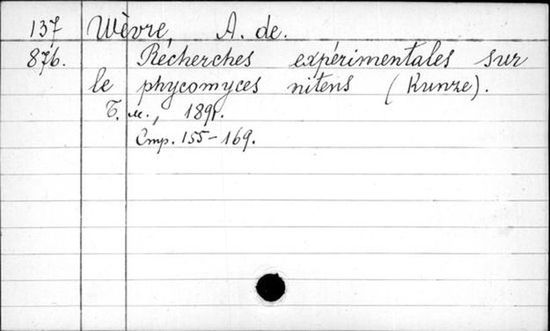 137 Wèvre, A. de.
876. Recherches expérimentales sur
le phycomyces nitens (Kunze).
Т. м., 1891.
Стр. 155-169.